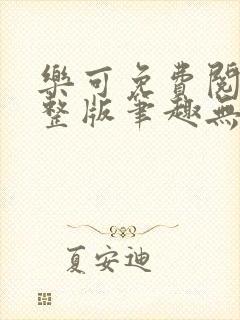 樂可免費閱
整版筆趣無
夏安迪